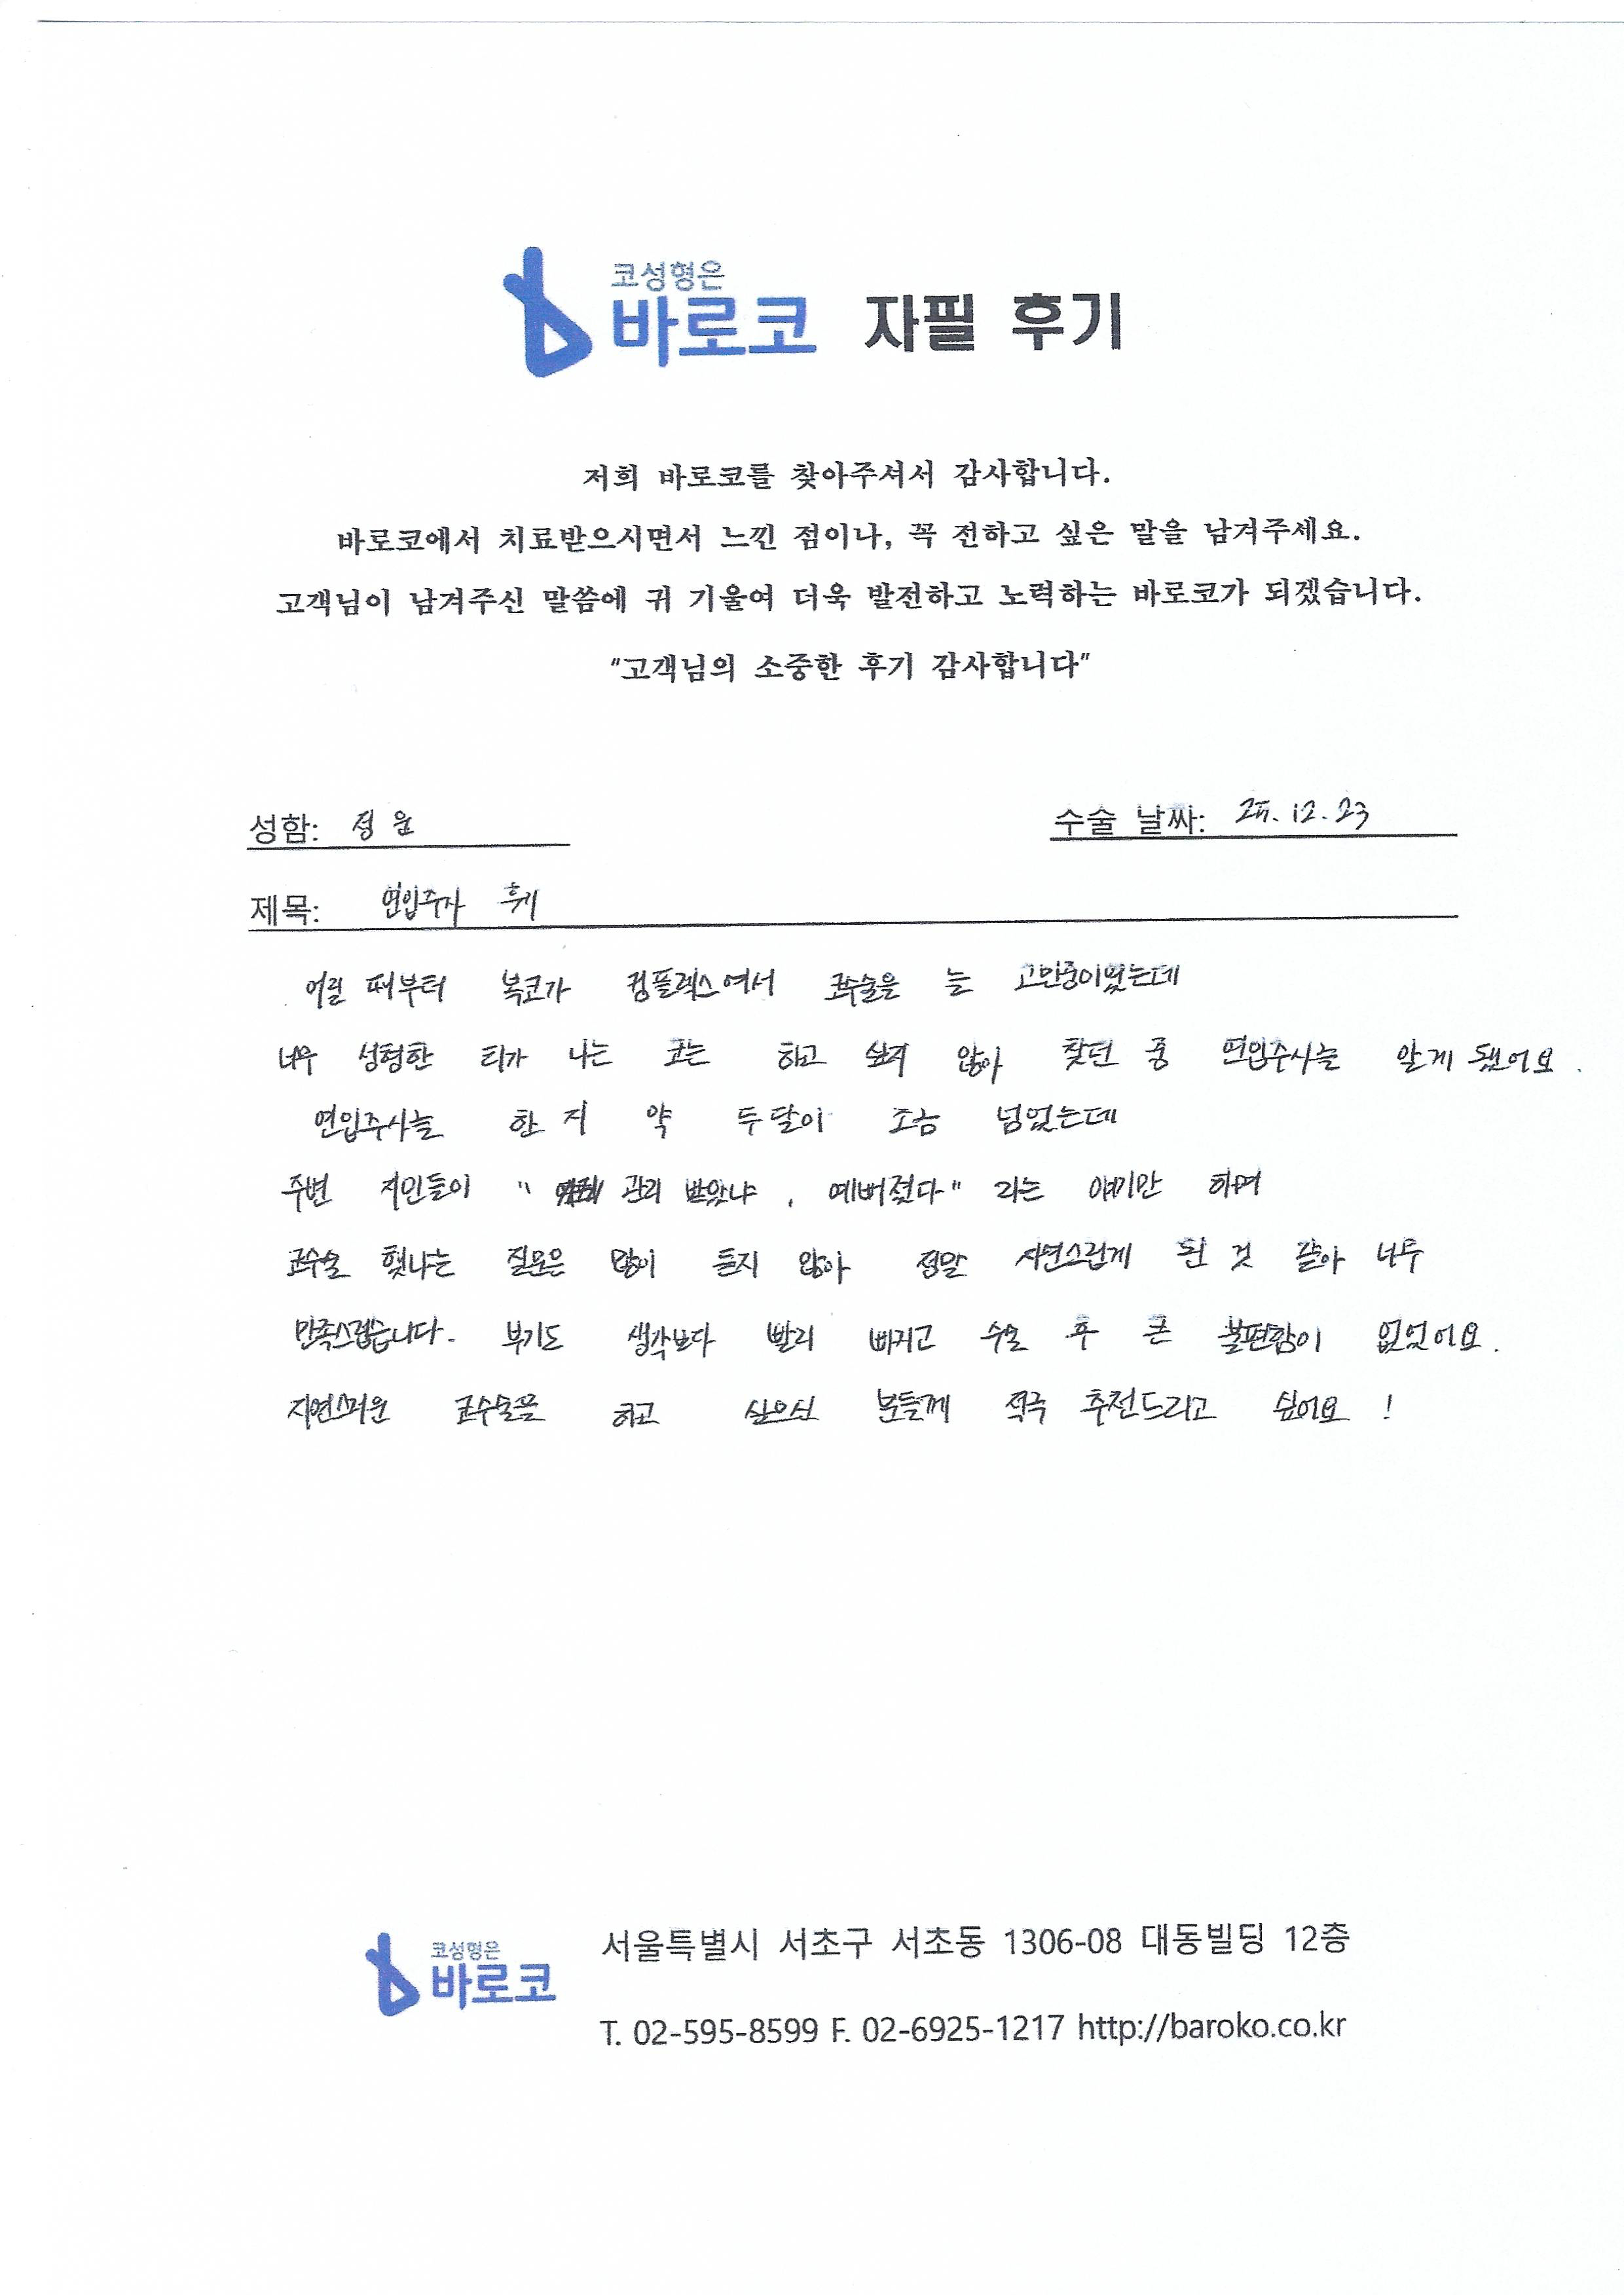 코성형은
바로코 자필 후기
저희 바로코를 찾아주셔서 감사합니다.
바로코에서 치료받으시면서 느낀 점이나, 꼭 전하고 싶은 말을 남겨주세요.
고객님이 남겨주신 말씀에 귀 기울여 더욱 발전하고 노력하는 바로코가 되겠습니다.
"고객님의 소중한 후기 감사합니다"
성함: 정윤 수술 날짜: 25.12.23
제목: 연입주사 후기
어릴 때부터 복코가 컴플렉스여서 코수술을 늘 고민중이었는데
너무 성형한 티가 나는 코는 하고 싶지 않아 찾던 중 연입주사를 알게 됐어요.
연입주사를 한 지 약 두달이 조금 넘었는데
주변 지인들이 " 관리 받았냐, 예뻐졌다" 라는 얘기만 하며
코수술 했냐는 질문은 많이 듣지 않아 정말 자연스럽게 된 것 같아 너무
만족스럽습니다. 부기도 생각보다 빨리 빠지고 수술 후 큰 불편함이 없었어요.
자연스러운 코수술을 하고 싶으신 분들께 적극 추천드리고 싶어요!
코성형은
바로코
서울특별시 서초구 서초동 1306-08 대동빌딩 12층
T. 02-595-8599 F. 02-6925-1217 http://baroko.co.kr